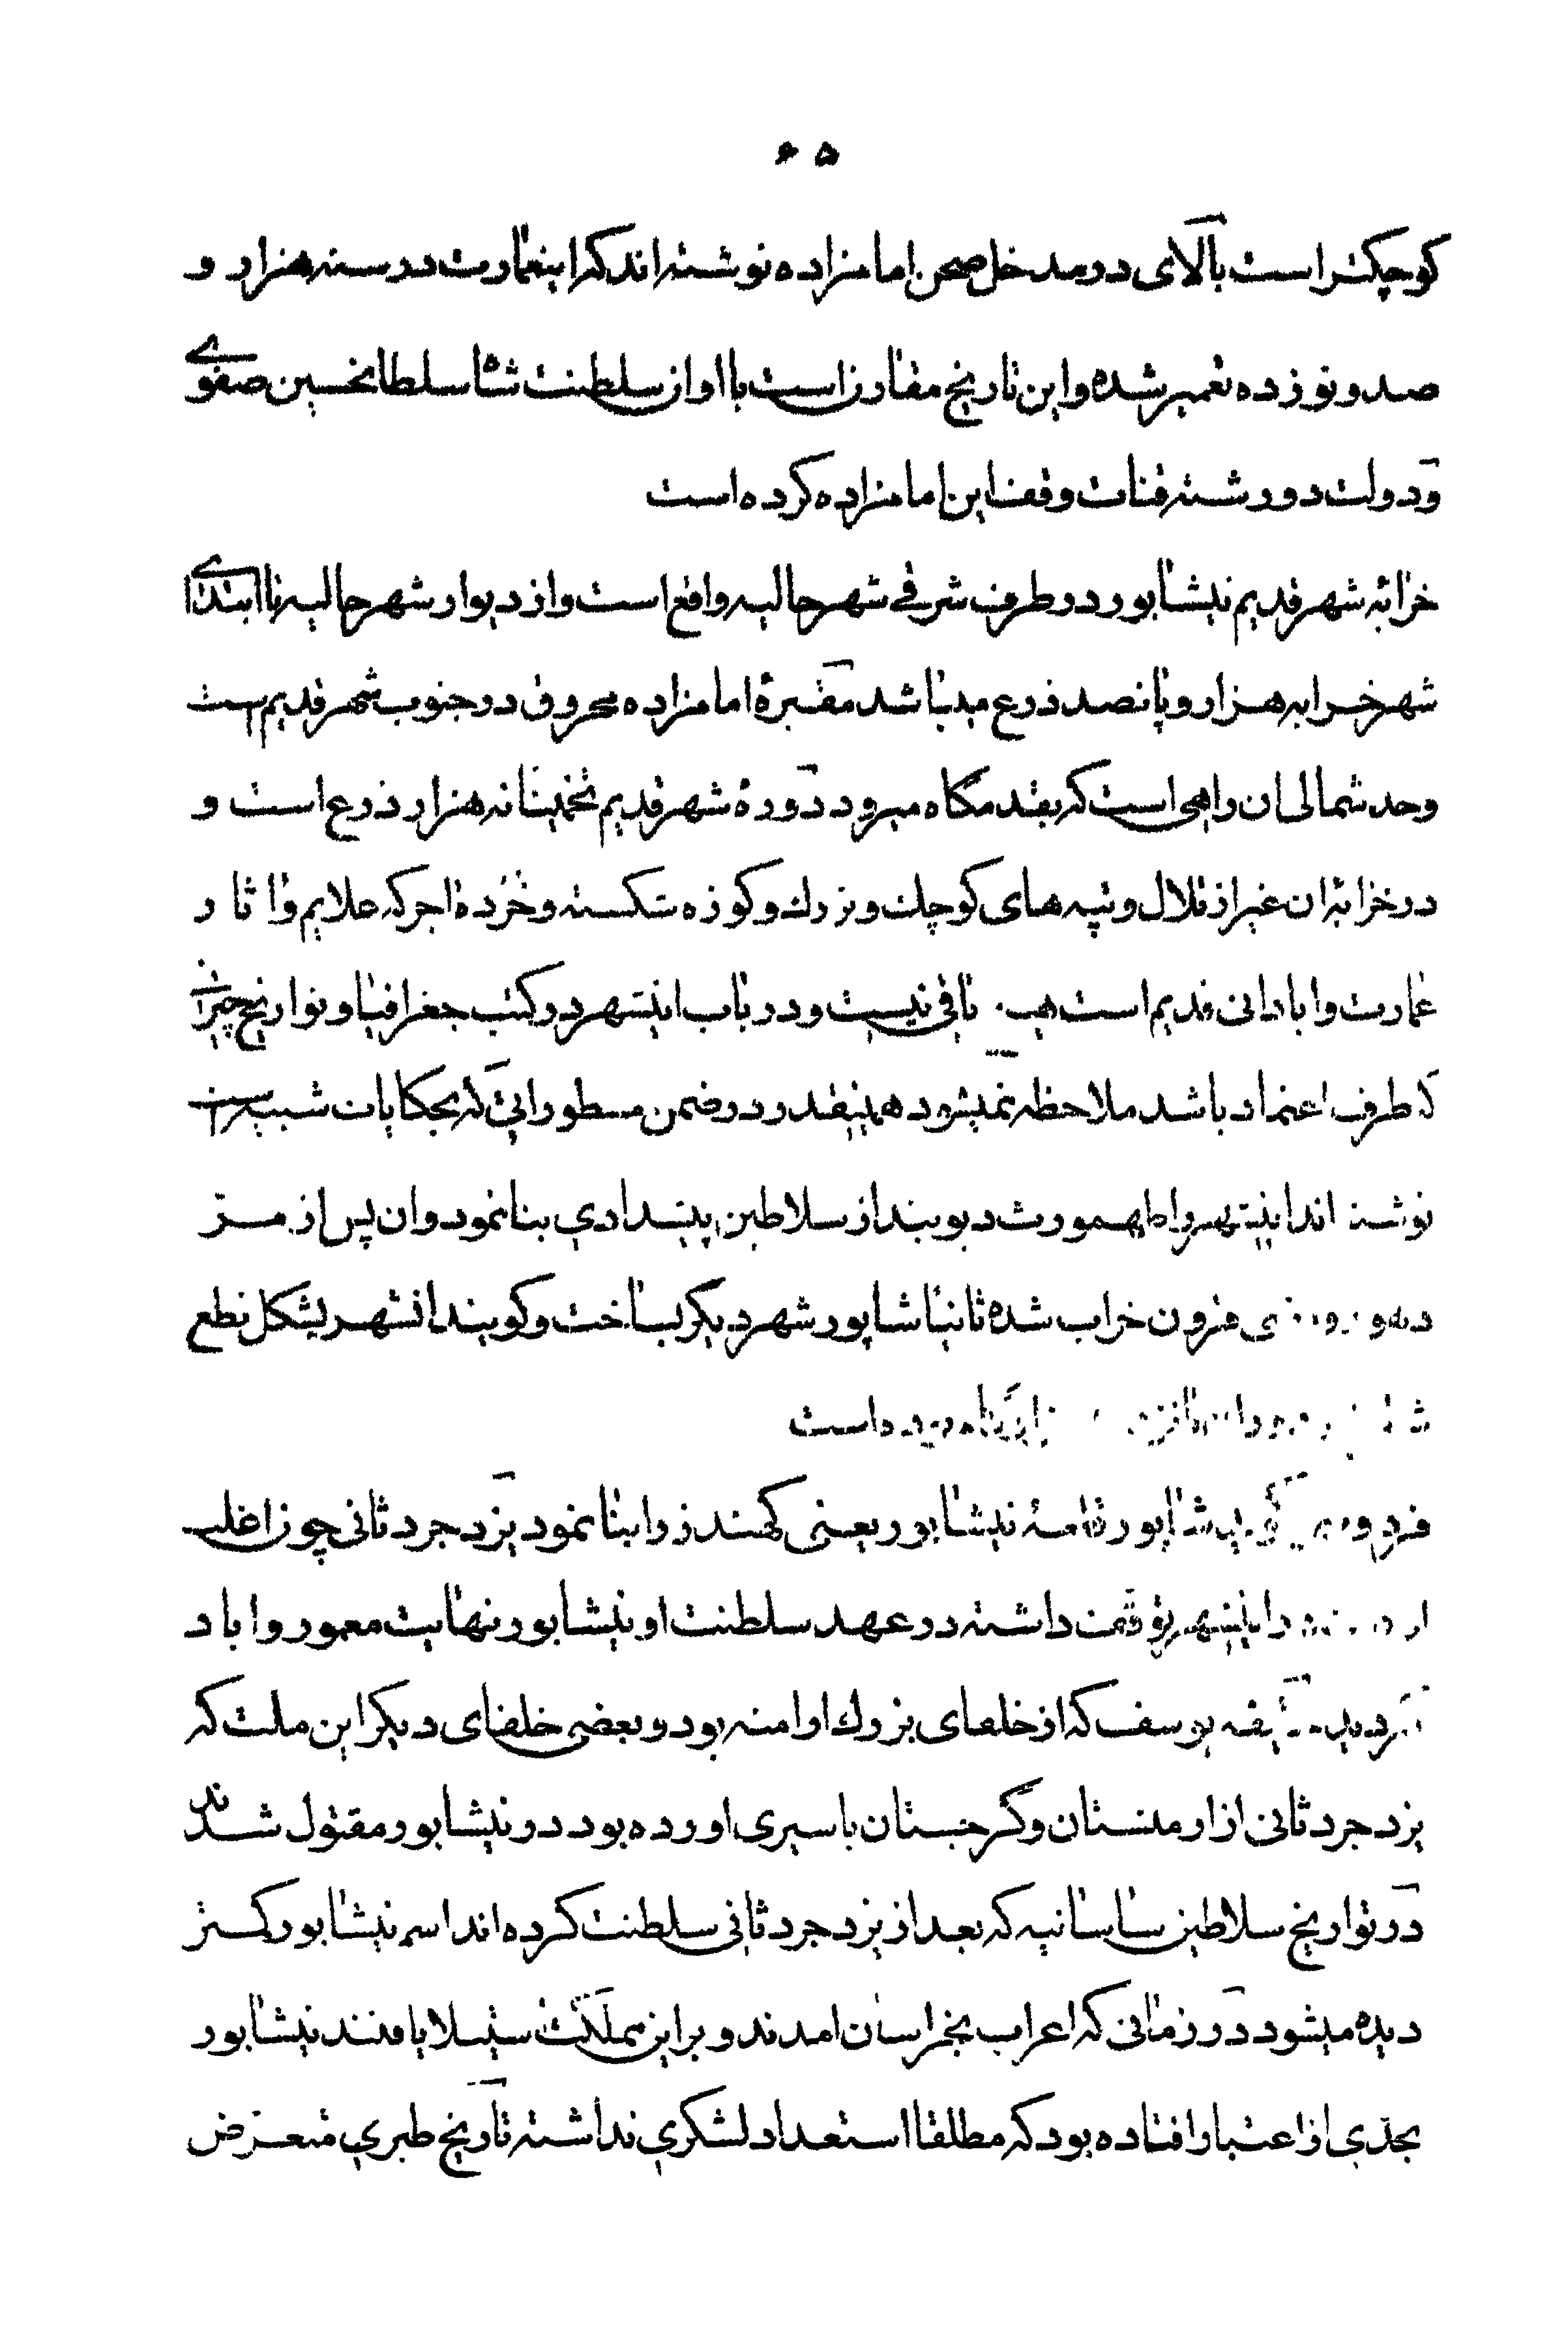 ۶۵
کوچکتر است بالای در مدخل صحن امامزاده نوشته‌اند که اینعمارت در سنه هزار و
صد و نوزده تعمیر شده و این تاریخ مقارن است با اواز سلطنت شاه سلطانحسین صفوی
و دولت دو رشته قنات وقف این امامزاده کرده است
خرابهٔ شهر قدیم نیشابور در طرف شرقی شهر حالیه واقع است و از دیوار شهر حالیه تا ابتدای
شهر خرابه هزار و پانصد ذرع میباشد مقبرهٔ امامزاده محروق در جنوب شهر قدیم است
و حد شمالی ان راهی است که بقدمگاه میرود دورهٔ شهر قدیم تخمینا نه هزار ذرع است و
در خرابهٔ ان غیر از تلال و تپه های کوچک و بزرگ و کوزه شکسته و خرده اجر که علایم و اثار
عمارت و ابادانی قدیم است باقی نیست و در باب اینشهر در کتب جغرافیا و تواریخ چیزی
که طرف اعتماد باشد ملاحظه نمیشود همینقدر در ضمن مسطوراتی که بحکایات شبیه‌تر است
نوشته اند اینشهر را طهمورث دیوبند از سلاطین پیشدادی بنا نمود و ان پس از
قرون خراب شده ثانیا شاپور شهر دیگر بساخت و گویند انشهر بشکل نطع
است
شاپور نیشابور یعنی کهندز را بنا نمود یزدجرد ثانی چون اغلب
در اینشهر توقف داشته در عهد سلطنت او نیشابور نهایت معمور و اباد
گردید یوسف که از خلفای بزرگ ارامنه بود و بعضی خلفای دیگر این ملت که
یزدجرد ثانی از ارمنستان و گرجستان باسیری اورده بود در نیشابور مقتول شدند
در تواریخ سلاطین ساسانیه که بعد از یزدجرد ثانی سلطنت کرده اند اسم نیشابور کمتر
دیده میشود در زمانی که اعراب بخراسان امدند و بر این مملکت استیلا یافتند نیشابور
بحدی از اعتبار افتاده بود که مطلقا استعداد لشکری نداشته تاریخ طبری متعرض